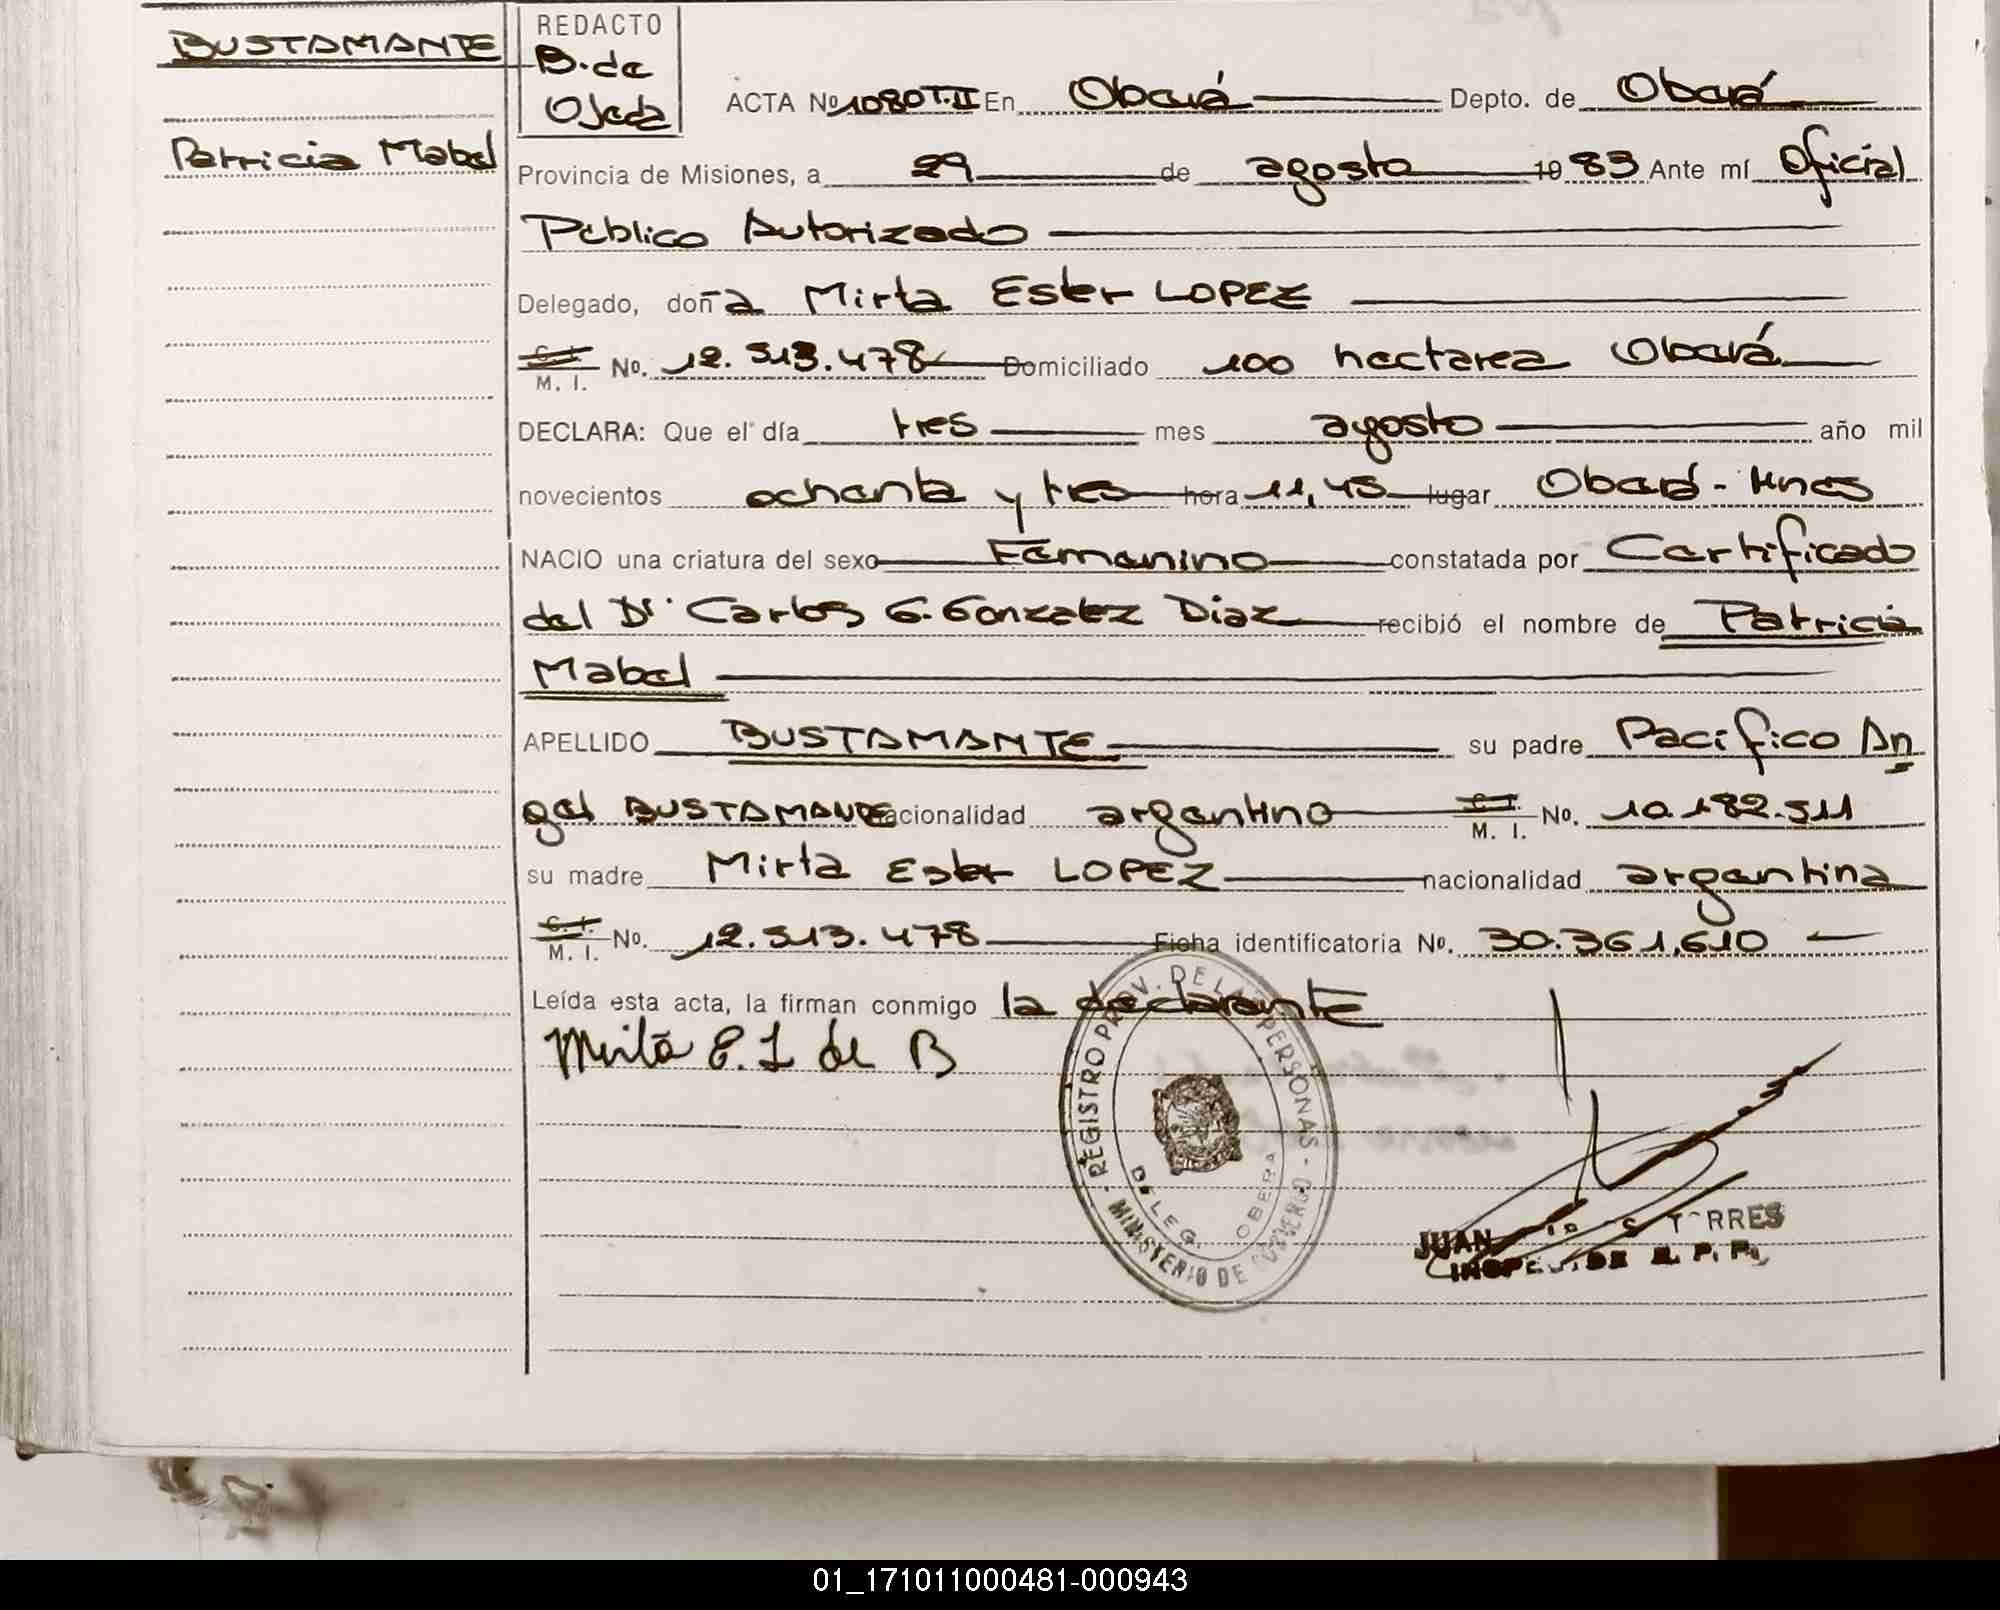 BUSTAMANTE
Patricia Mabel
REDACTO
B. de
Ojeda
ACTA Nº 1080 T.II En Oberá Depto. de Oberá
Provincia de Misiones, a 29 de agosto 19 83 Ante mí Oficial
Publico Autorizado
Delegado, doña Mirta Ester LOPEZ
C. I.
M. I. No. 12.513.478 Domiciliado 100 hectarea Oberá
DECLARA: Que el día tres mes agosto año mil
novecientos ochenta y tres hora 11,45 lugar Oberá - Mnes
NACIO una criatura del sexo Femenino constatada por Certificado
del Dr. Carlos G. Gonzalez Diaz recibió el nombre de Patricia
Mabel
APELLIDO BUSTAMANTE su padre Pacifico An
gel BUSTAMANTE nacionalidad argentino C. I.
M. I. No. 10.182.511
su madre Mirta Ester LOPEZ nacionalidad argentina
C. I.
M. I. No. 12.513.478 Ficha identificatoria No. 30.361.610
Leída esta acta, la firman conmigo la declarante
Mirta E. L de B
REGISTRO PROV. DE LAS PERSONAS - MINISTERIO DE GOBIERNO -
DELEG. OBERA
JUAN TORRES
R. P. P.
01_171011000481-000943